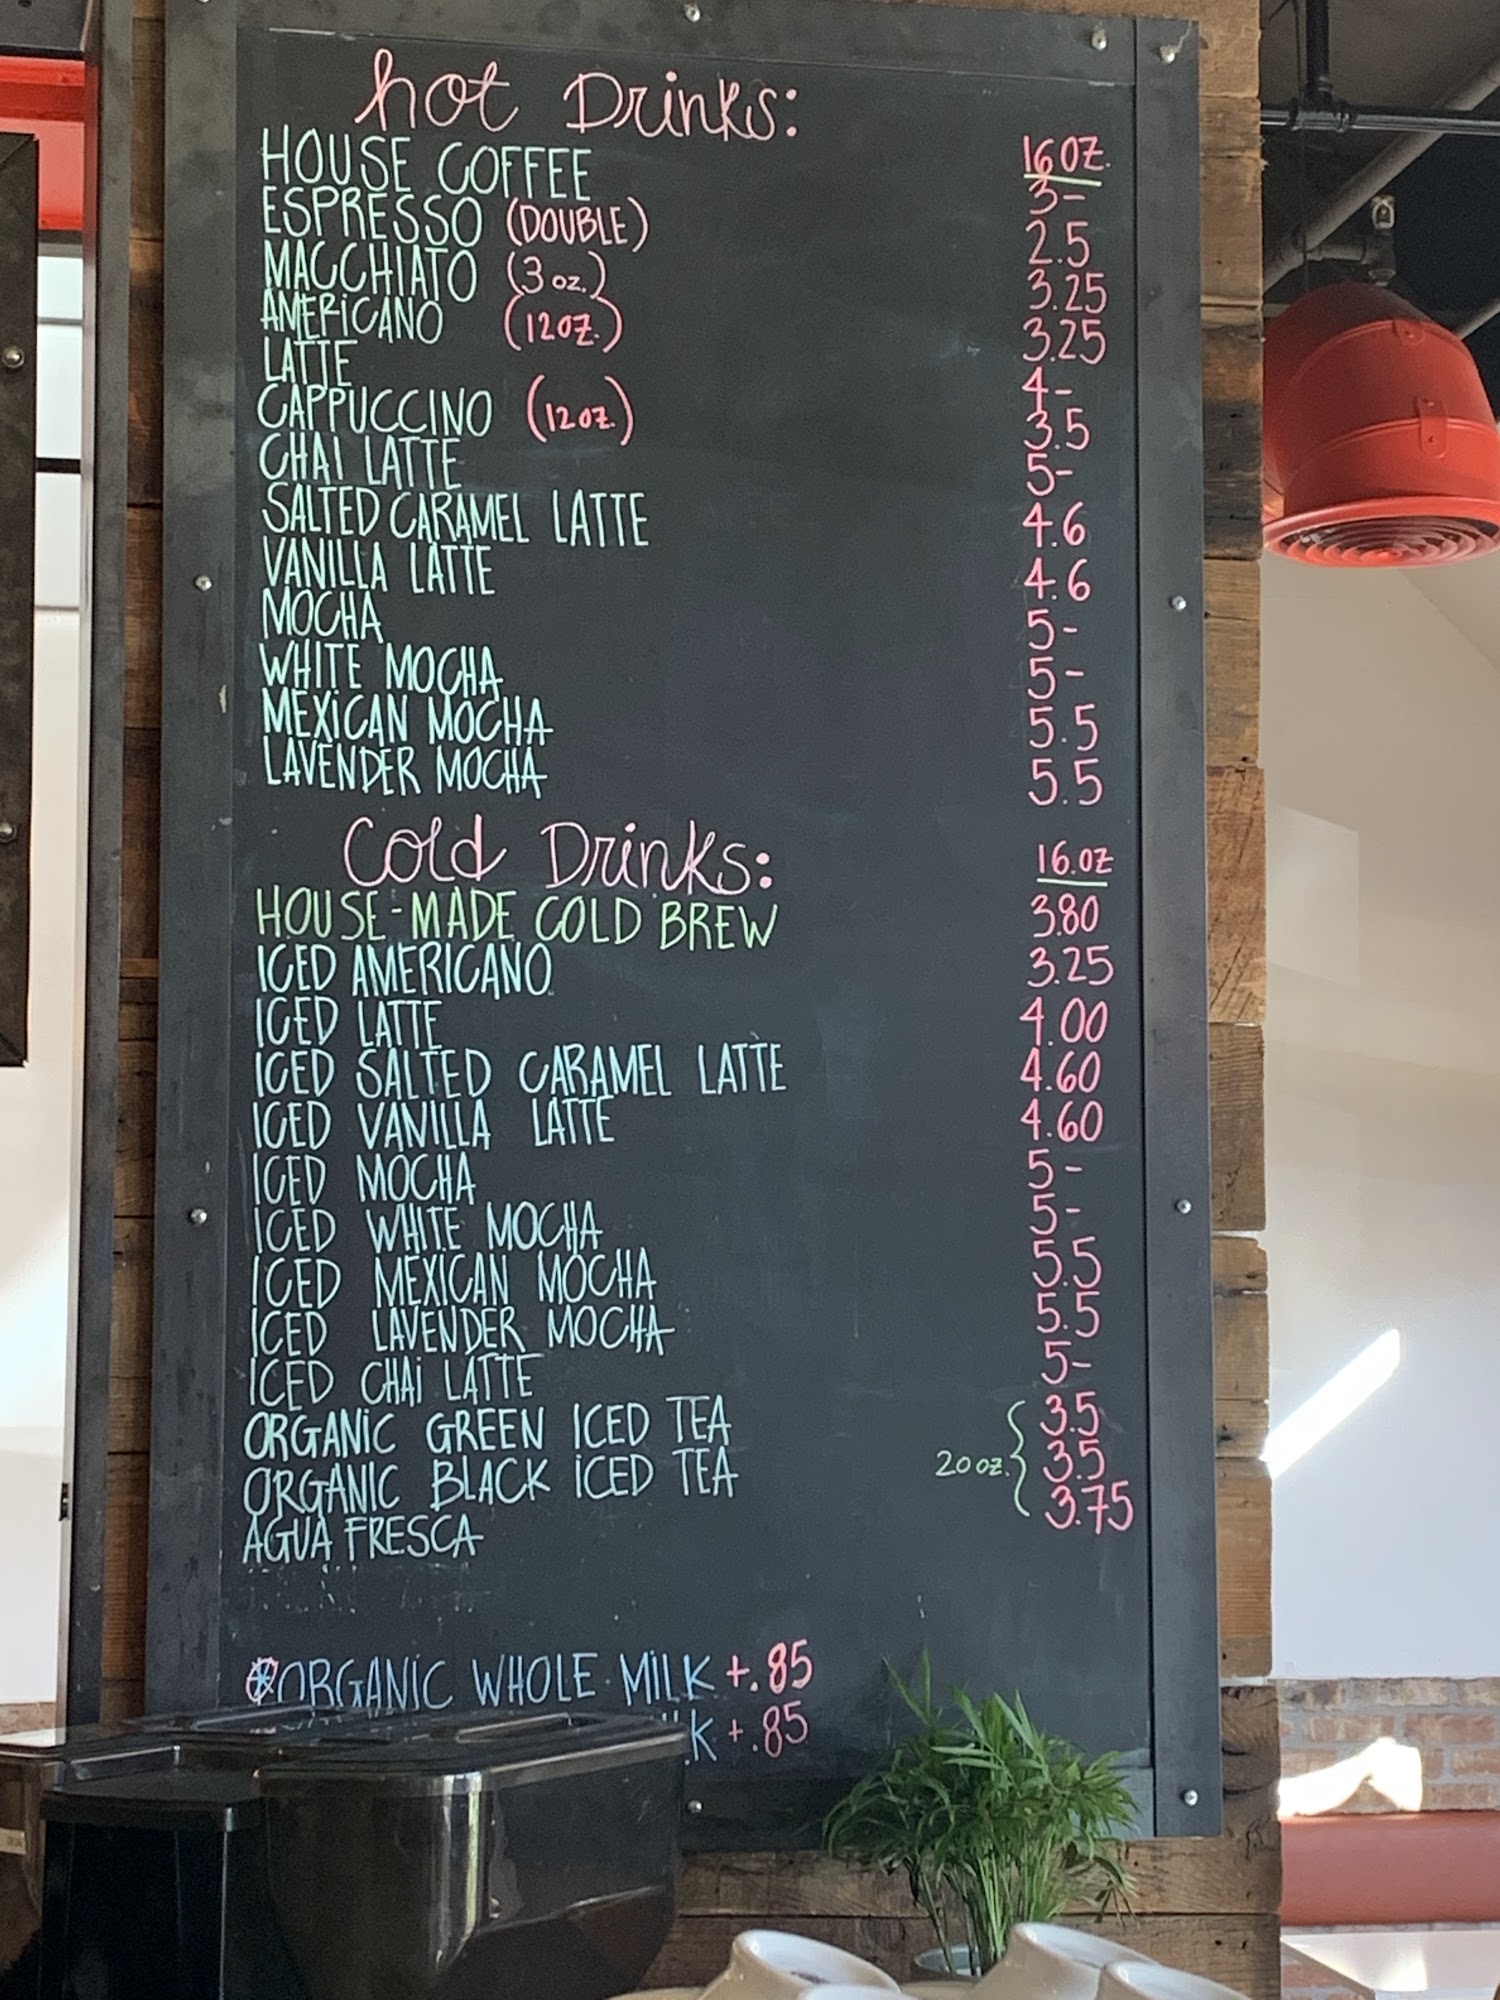 hot Drinks:
16 oz.
HOUSE COFFEE 3-
ESPRESSO (DOUBLE) 2.5
MACCHIATO (3 oz.) 3.25
AMERICANO (12oz.) 3.25
LATTE 4-
CAPPUCCINO (12oz.) 3.5
CHAI LATTE 5-
SALTED CARAMEL LATTE 4.6
VANILLA LATTE 4.6
MOCHA 5-
WHITE MOCHA 5-
MEXICAN MOCHA 5.5
LAVENDER MOCHA 5.5
Cold Drinks: 16.oz
HOUSE-MADE COLD BREW 3.80
ICED AMERICANO 3.25
ICED LATTE 4.00
ICED SALTED CARAMEL LATTE 4.60
ICED VANILLA LATTE 4.60
ICED MOCHA 5-
ICED WHITE MOCHA 5-
ICED MEXICAN MOCHA 5.5
ICED LAVENDER MOCHA 5.5
ICED CHAI LATTE 5-
ORGANIC GREEN ICED TEA 3.5
ORGANIC BLACK ICED TEA 20 oz. 3.5
AGUA FRESCA 3.75
ORGANIC WHOLE MILK +.85
LK +.85